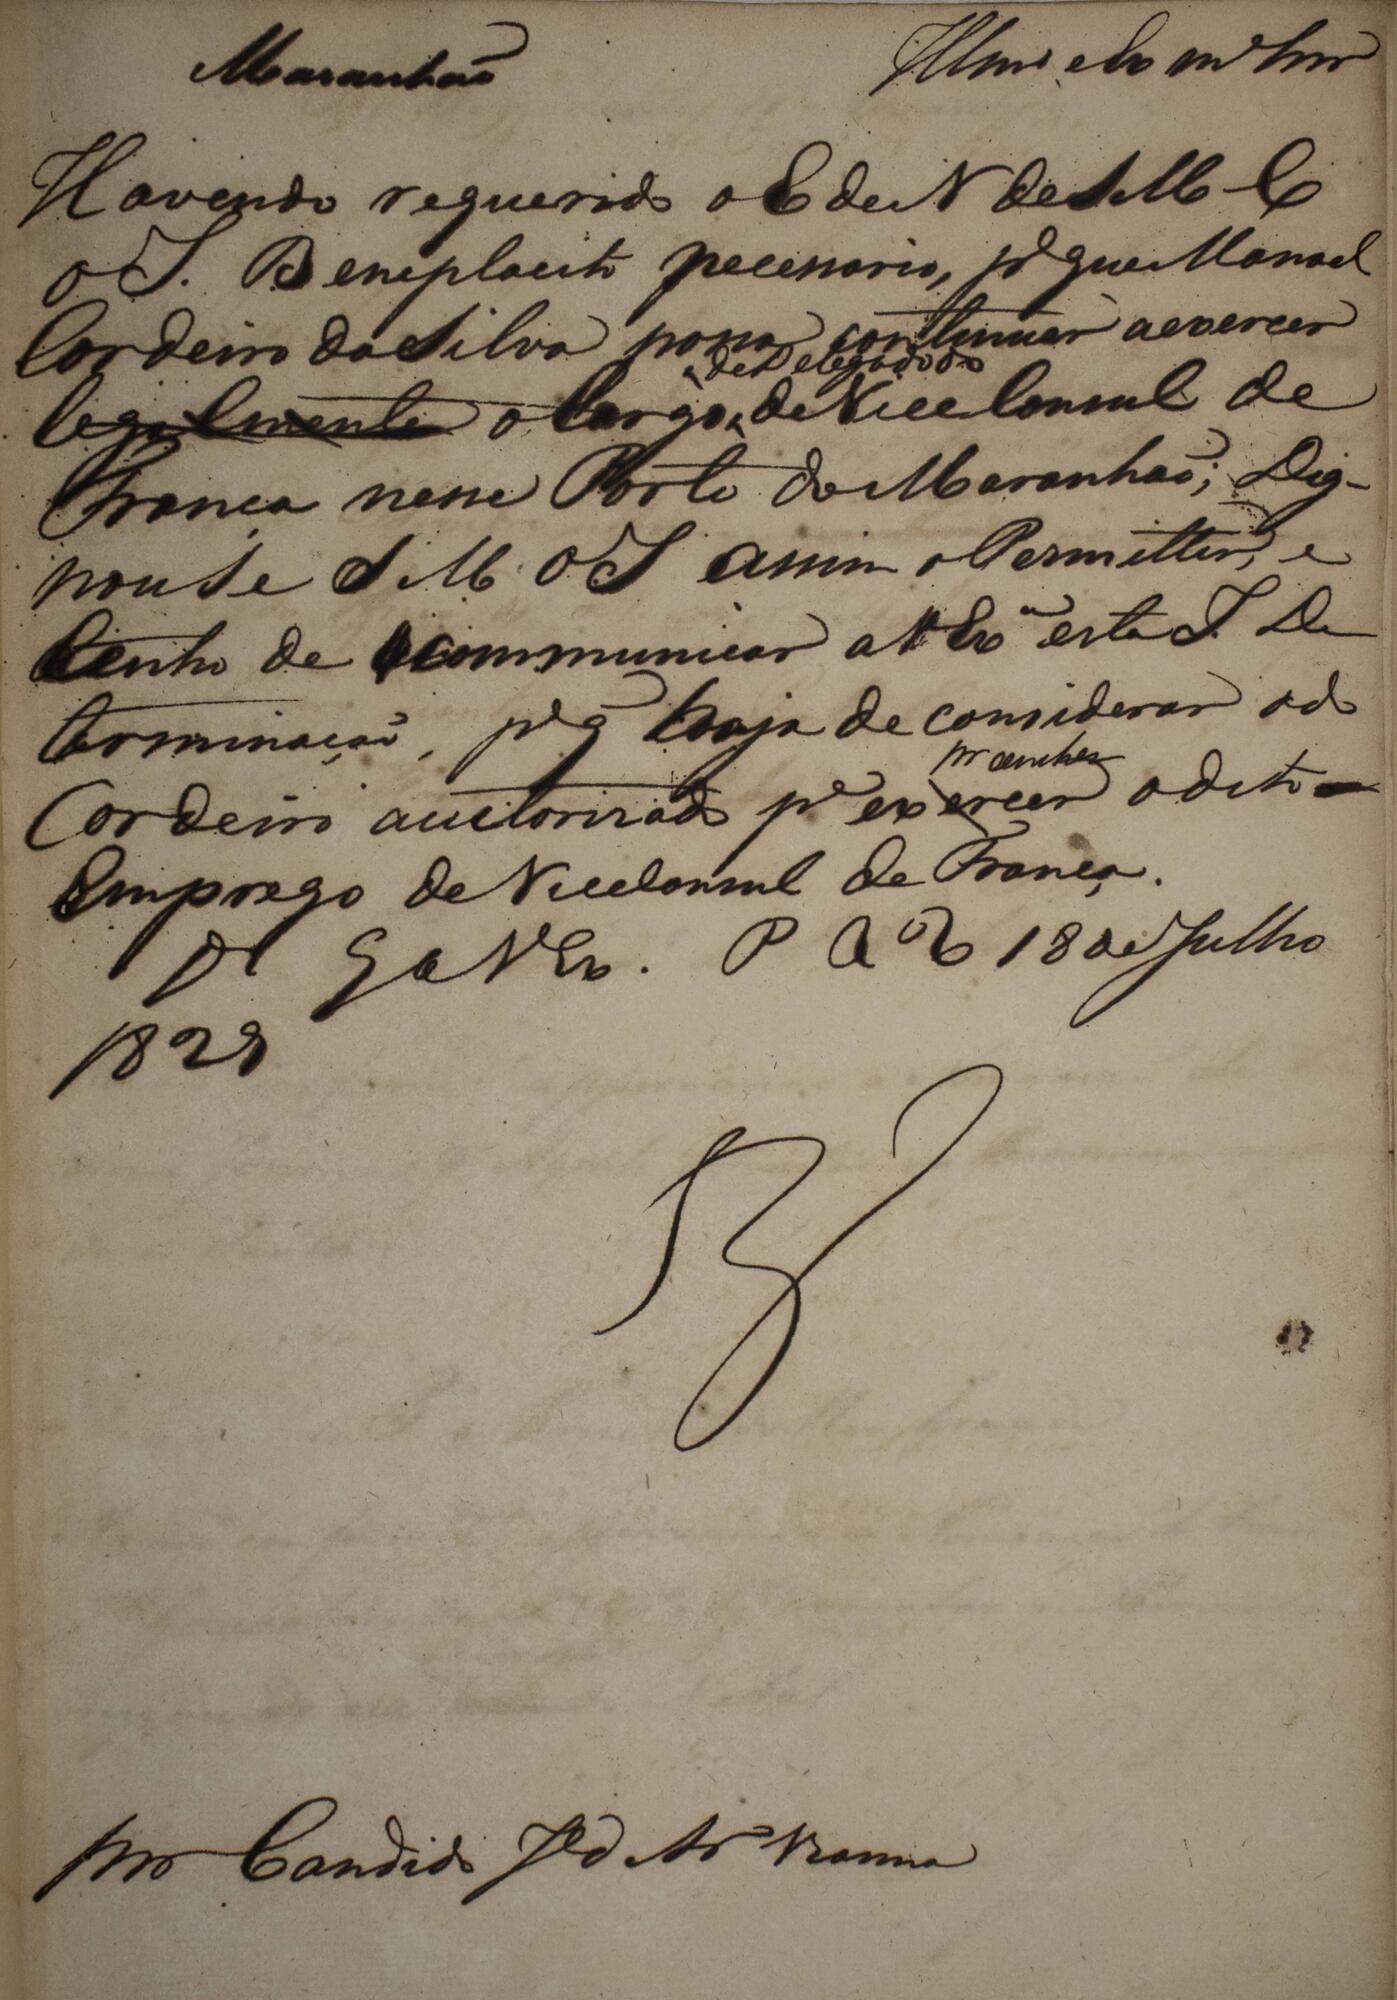 Maranhão
Illmo e Exmo Snr
Havendo requerido o E de N de S M C
o I. Beneplacito necessario, pª que Manoel
Cordeiro da Silva possa continuar a exercer
de Delegado do
legalmente o Cargo de Vice Consul de
França nesse Porto do Maranhão; Dig-
nou Se S M O I assim o Permittir, e
tenho de communicar a V Exª esta I. De
terminação, pª q haja de considerar o dº
Cordeiro auctorizado pª exercer o dito
prencher
Emprego de Vice Consul de França.
Ds G a V Ex. P 18 de Julho
1828
Snr Candido Je d Ar Vianna